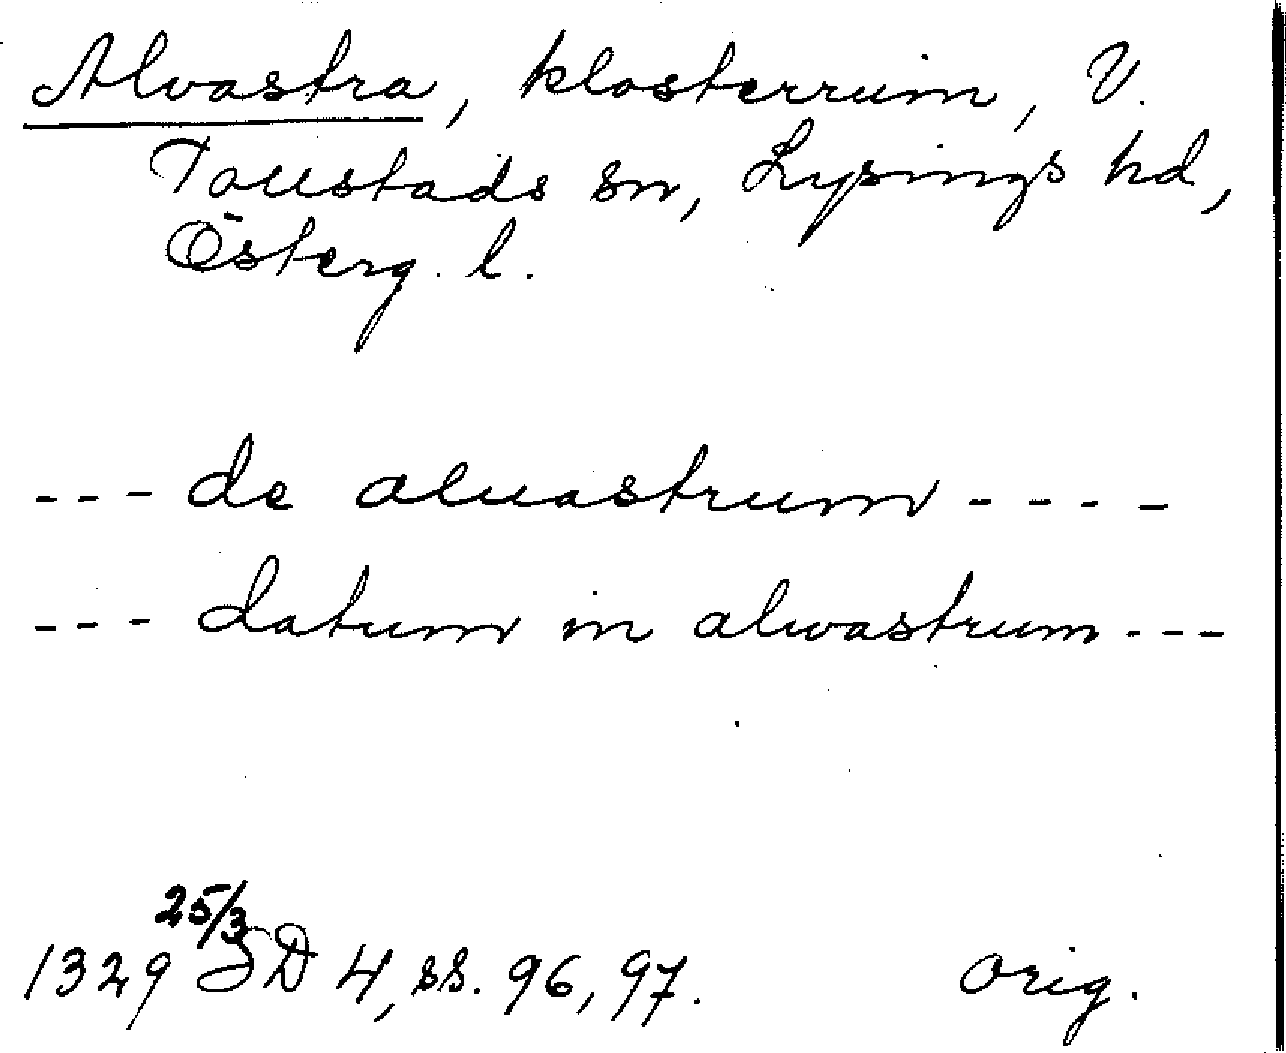 Alvastra, klosterruin, V.
Tollstads sn, Lysings hd,
Österg. l.
--- de aluastrum ----
--- datum in alwastrum ---
1329 25/3 SD 4, ss. 96, 97. orig.